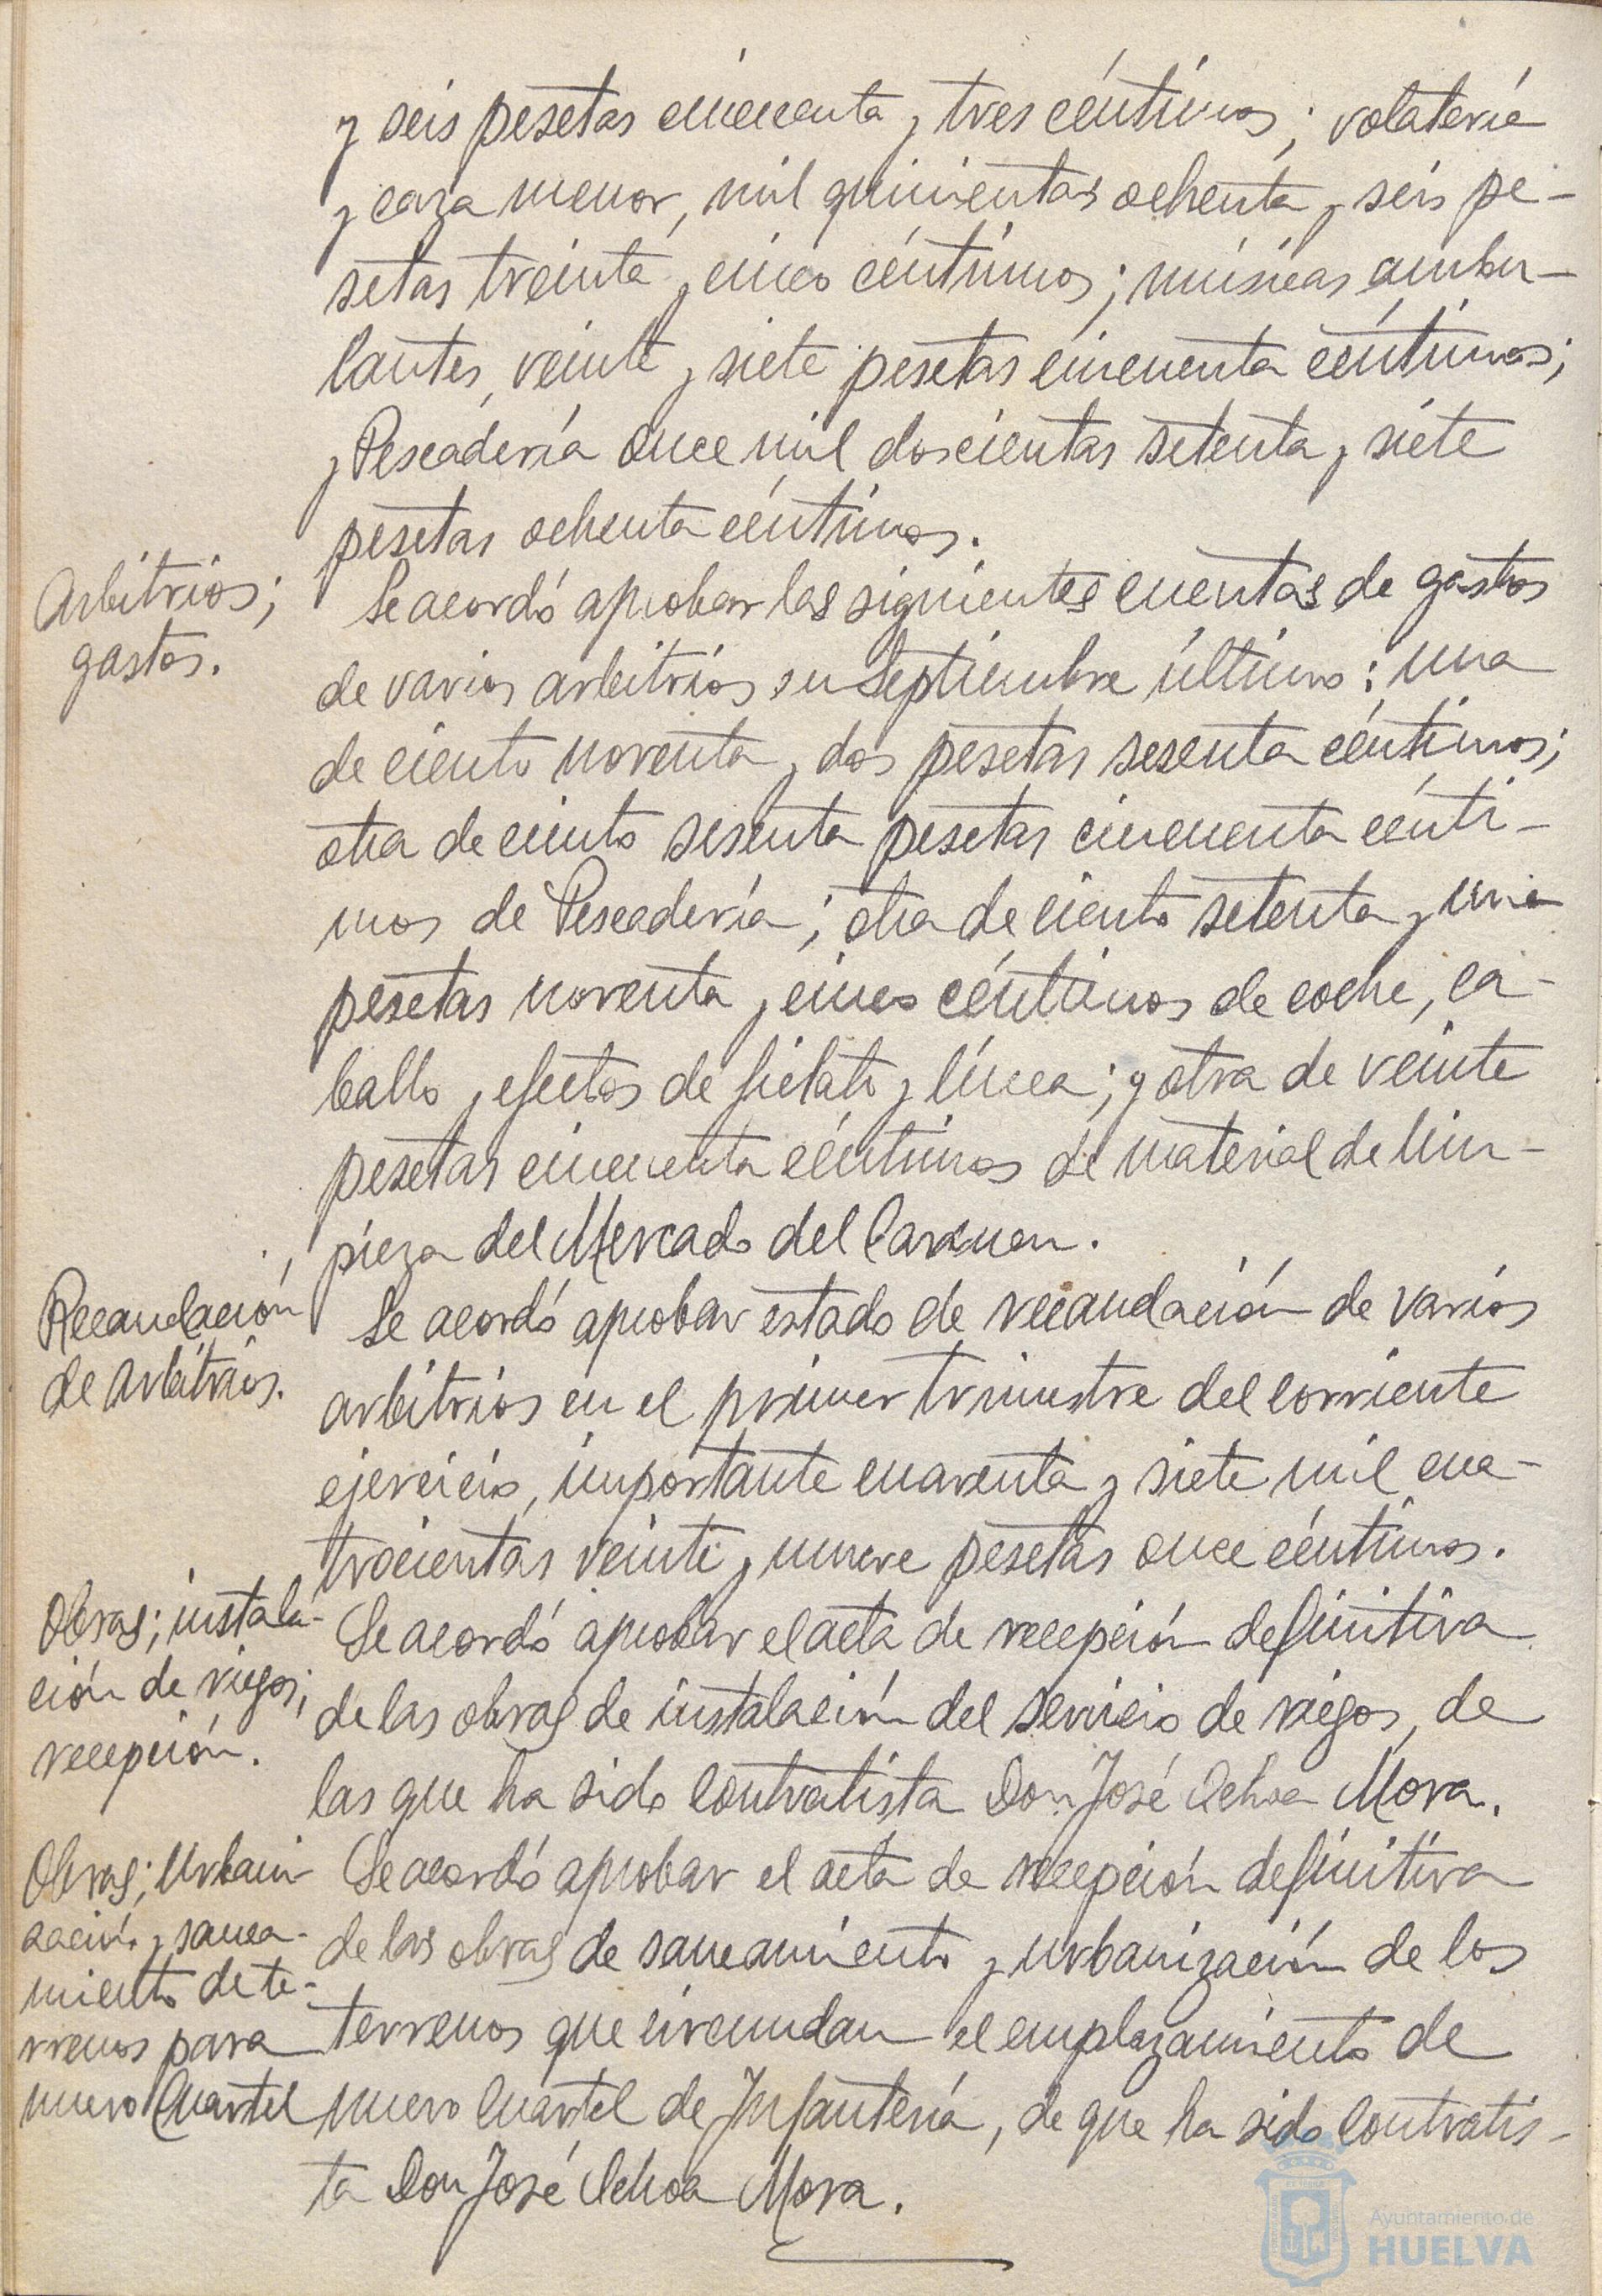 y seis pesetas cincuenta y tres céntimos; volatería
y caza menor, mil quinientas ochenta y seis pe-
setas treinta y cinco céntimos; músicas ambu-
lantes, veinte y siete pesetas cincuenta céntimos;
y Pescadería once mil doscientas setenta y siete
pesetas ochenta céntimos.
Arbitrios;
gastos.
Se acordó aprobar las siguientes cuentas de gastos
de varios arbitrios en Septiembre último: una
de ciento noventa y dos pesetas sesenta céntimos;
otra de ciento sesenta pesetas cincuenta cénti-
mos de Pescadería; otra de ciento setenta y una
pesetas noventa y cinco céntimos de coche, ca-
ballo y efectos de fielato y línea; y otra de veinte
pesetas cincuenta céntimos de material de lim-
pieza del Mercado del Carmen.
Recaudación
de Arbitrios.
Se acordó aprobar estado de recaudación de varios
arbitrios en el primer trimestre del corriente
ejercicio, importante cuarenta y siete mil cua-
trocientas veinte y nueve pesetas once céntimos.
Obras; instala-
ción de riegos;
recepción.
Se acordó aprobar el acta de recepción definitiva
de las obras de instalación del servicio de riegos, de
las que ha sido contratista Don José Ochoa Mora.
Obras; Urbani-
zación y sanea-
miento de te-
rrenos para
nuevo Cuartel
Se acordó aprobar el acta de recepción definitiva
de las obras de saneamiento y urbanización de los
terrenos que circundan el emplazamiento de
nuevo Cuartel de Infantería, de que ha sido contratis-
ta Don José Ochoa Mora.
Ayuntamiento de
HUELVA